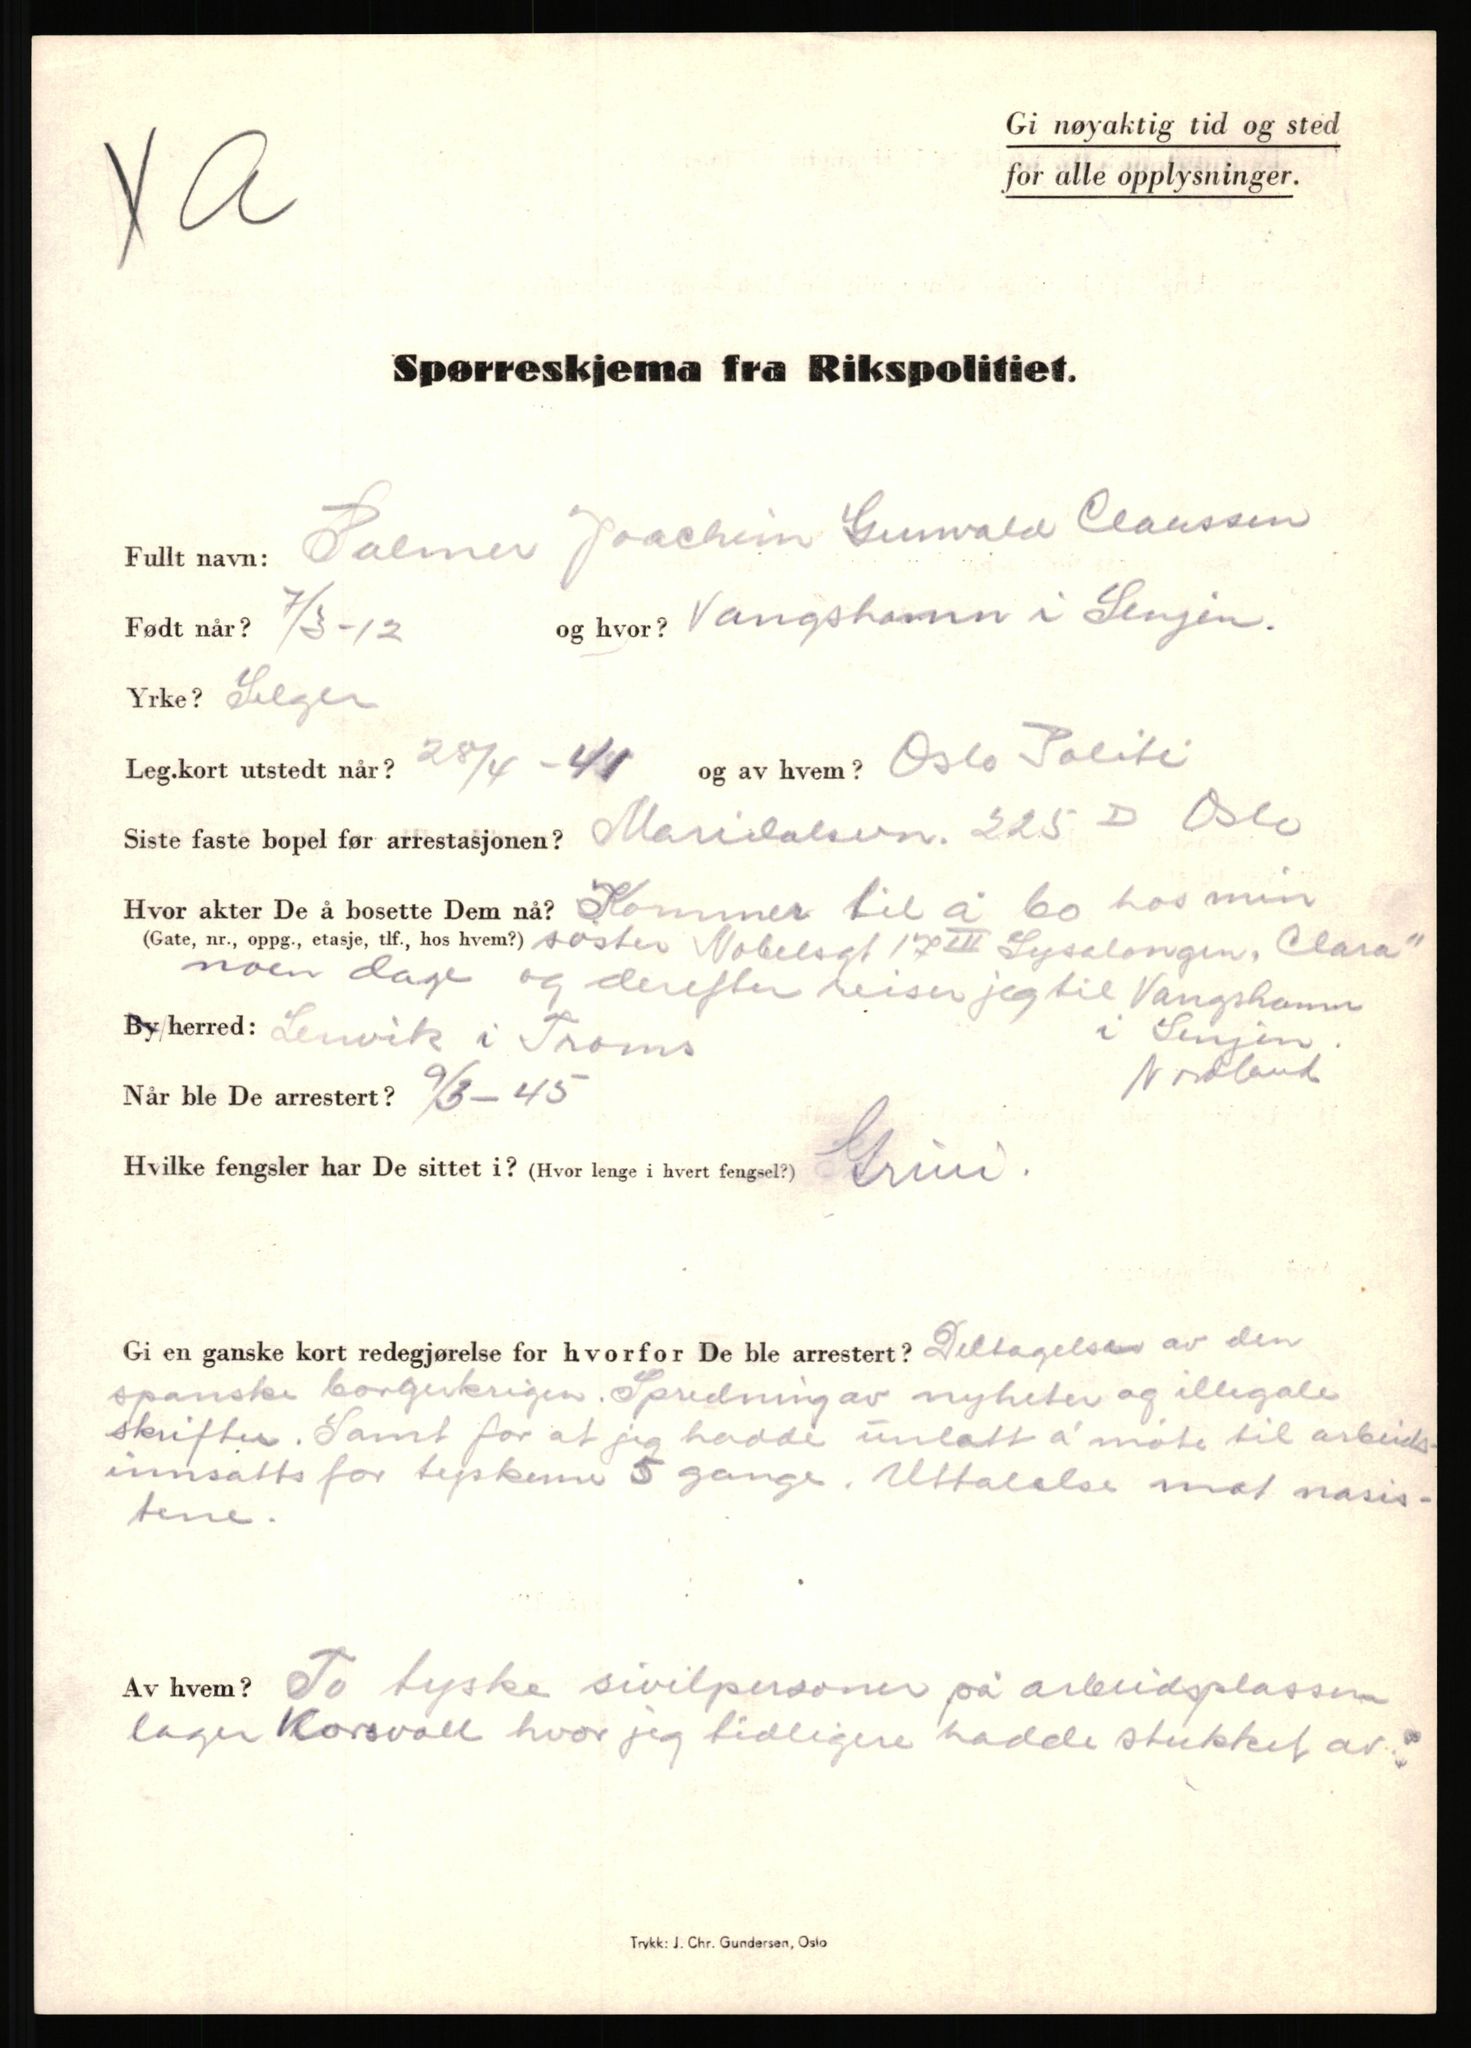 Gi nøyaktig tid og sted
for alle opplysninger.
X A
Spørreskjema fra Rikspolitiet.
Fullt navn: Palmer Joachim Gunvald Claussen
Født når? 7/3-12 og hvor? Vangshamn i Senjen.
Yrke? Selger
Leg.kort utstedt når? 28/4-41 og av hvem? Oslo Politi
Siste faste bopel før arrestasjonen? Maridalsvn. 225 D Oslo
Hvor akter De å bosette Dem nå? Kommer til å bo hos min
(Gate, nr., oppg., etasje, tlf., hos hvem?) søster Nobelsgt 17 III Lysalongen, Clara"
noen dage og derefter reiser jeg til Vangshamn
By/herred: Lenvik i Troms i Senjen.
Nordland
Når ble De arrestert? 9/3-45
Hvilke fengsler har De sittet i? (Hvor lenge i hvert fengsel?) Grini.
Gi en ganske kort redegjørelse for hvorfor De ble arrestert? Deltagelse av den
spanske borgerkrigen. Spredning av nyheter og illegale
skrifter. Samt for at jeg hadde unlatt å møte til arbeids-
innsatts for tyskerne 5 gange. Uttalelse mot nasis-
tene.
Av hvem? To tyske sivilpersoner på arbeidsplassen
lager Korsvoll hvor jeg tidligere hadde stukket av.
Trykk: J. Chr. Gundersen, Oslo